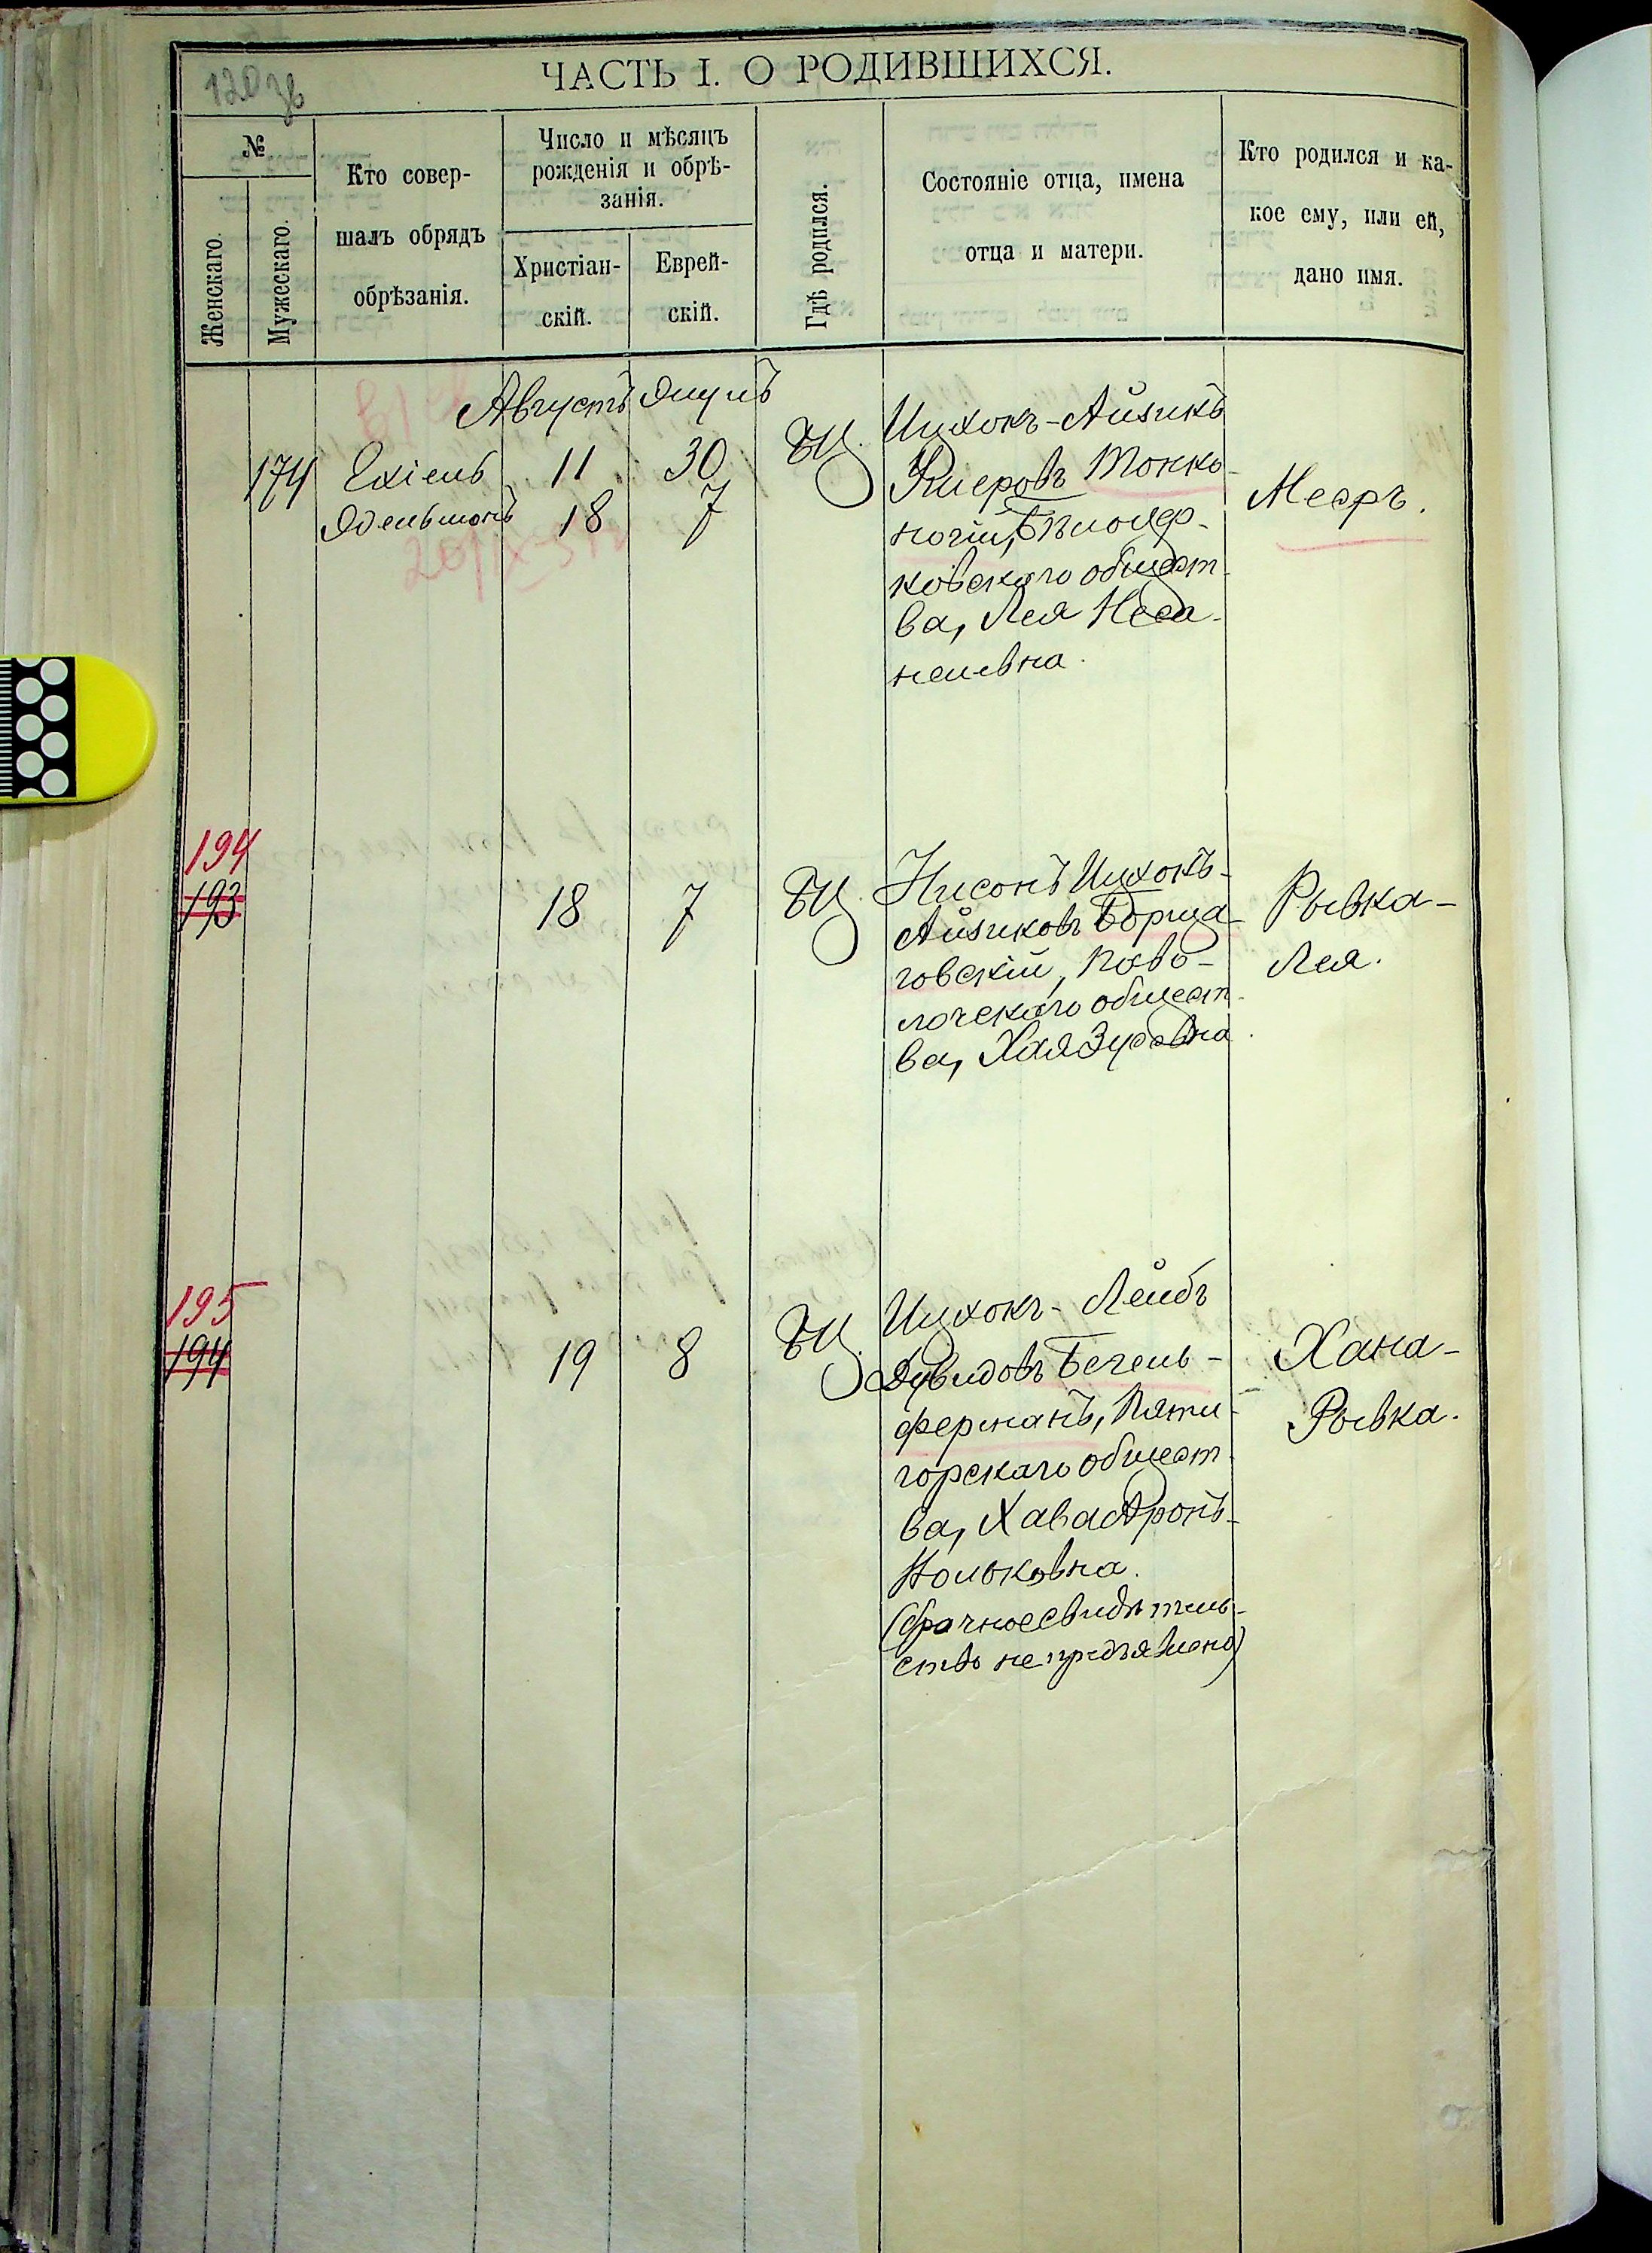 120 зв
ЧАСТЬ I. О РОДИВШИХСЯ.
№
Женскаго.
Мужескаго.
Кто совер-
шалъ обрядъ
обрѣзанія.
Число и мѣсяцъ
рожденія и обрѣ-
занія.
Христіан-
скій.
Еврей-
скій.
Гдѣ родился.
Состояніе отца, имена
отца и матери.
Кто родился и ка-
кое ему, или ей,
дано имя.
Августъ
174
Ехіель
Эдельманъ
11
18
30
7
БЦ.
Ицхокъ-Айзикъ
Тонко-
ногій, Бѣло
ковскаго общест-
ва, Лея Неса-
нелевна.
Мееръ.
194
193
18
7
БЦ.
Нисонъ Ицхокъ-
Айзиковъ Борща-
говскій, Паво-
лочскаго общест-
ва, Хая
Рывка-
Лея.
195
194
19
8
БЦ.
Ицхокъ-Лейбъ
Дувидовъ Бечель-
ферманъ, Пяти-
горскаго общест-
ва, Хава Аронъ-
Нольковна.
(брачное свидѣтель-
ство не предъявлено)
Хана-
Рывка.